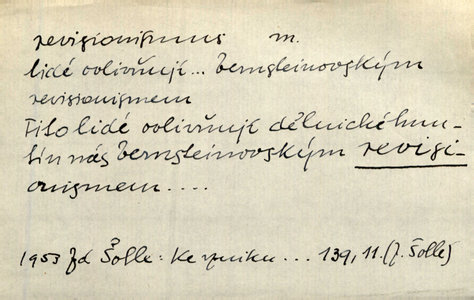 revisionismus m.
lidé ovlivňují... bernsteinovským
revisionismem
Tito lidé ovlivňují dělnické hnu-
tí u nás bernsteinovským revisi-
onismem....
1953 Zd Šolle: Ke vzniku... 139, 11. (Z. Šolle)